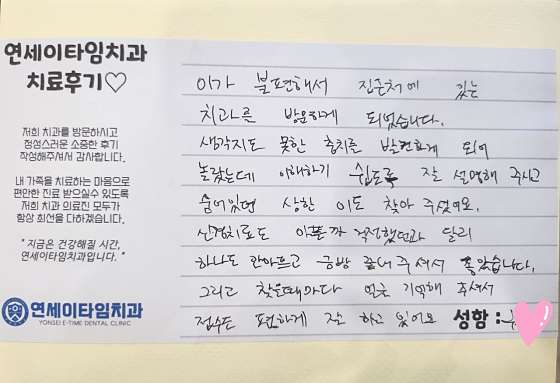 연세이타임치과
치료후기♡
저희 치과를 방문하시고
정성스러운 소중한 후기
작성해주셔서 감사합니다.
내 가족을 치료하는 마음으로
편안한 진료 받으실수 있도록
저희 치과 의료진 모두가
항상 최선을 다하겠습니다.
" 지금은 건강해질 시간,
연세이타임치과입니다. "
연세이타임치과
YONSEI E-TIME DENTAL CLINIC
이가 불편해서 집근처에 있는
치과를 방문하게 되었습니다.
생각지도 못한 충치를 발견하게 되어
놀랐는데 이해하기 쉽도록 잘 설명해 주시고
숨어있던 상한 이도 찾아 주셨어요.
신경치료도 아플까 걱정했던과 달리
하나도 안아프고 금방 끝내 주셔서 좋았습니다.
그리고 갔을때마다 얼굴 기억해 주셔서
접수도 편하게 잘 하고 있어요
성함 :